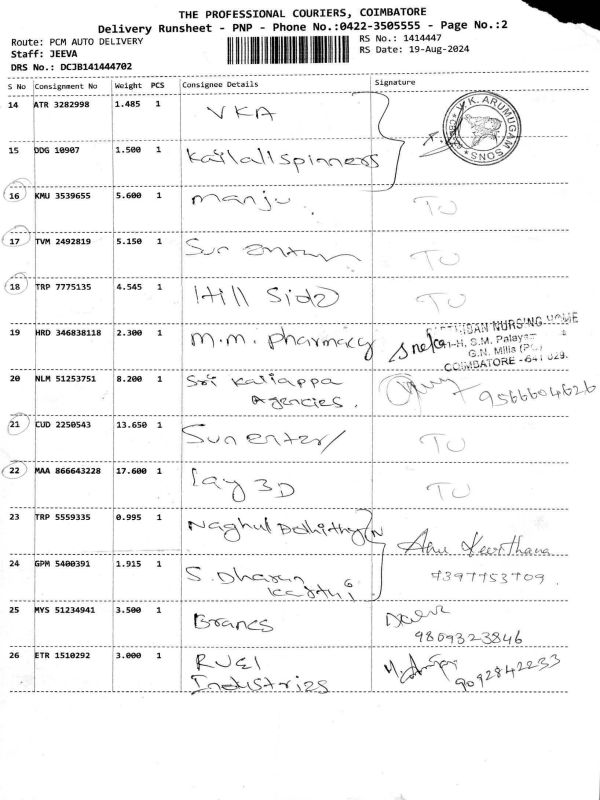 THE PROFESSIONAL COURIERS, COIMBATORE
Delivery Runsheet - PNP - Phone No.:0422-3505555 - Page No.:2
Route: PCM AUTO DELIVERY
RS No.: 1414447
Staff: JEEVA
RS Date: 19-Aug-2024
DRS No.: DCJB141444702
S No Consignment No Weight PCS Consignee Details Signature
14 ATR 3282998 1.485 1 VKA
V.K. ARUMUGAM SONS
15 DDG 10907 1.500 1 Kailall spinners
16 KMU 3539655 5.600 1 manju TU
17 TVM 2492819 5.150 1 Sun TU
18 TRP 7775135 4.545 1 Hill Side TU
19 HRD 346838118 2.300 1 M.M. Pharmacy Sneka
NURSING HOME
S.M. Palayam
G.N. Mills (PO)
COIMBATORE - 641 029.
20 NLM 51253751 8.200 1 Sri Kaliappa
Agencies. 9566604626
21 CUD 2250543 13.650 1 Sun enter/ TU
22 MAA 866643228 17.600 1 Lay 3D TU
23 TRP 5559335 0.995 1 Naghul
24 GPM 5400391 1.915 1 S. Dharan
9397753709
25 MYS 51234941 3.500 1
9809323846
26 ETR 1510292 3.000 1 RUEI
Industries 9092842233